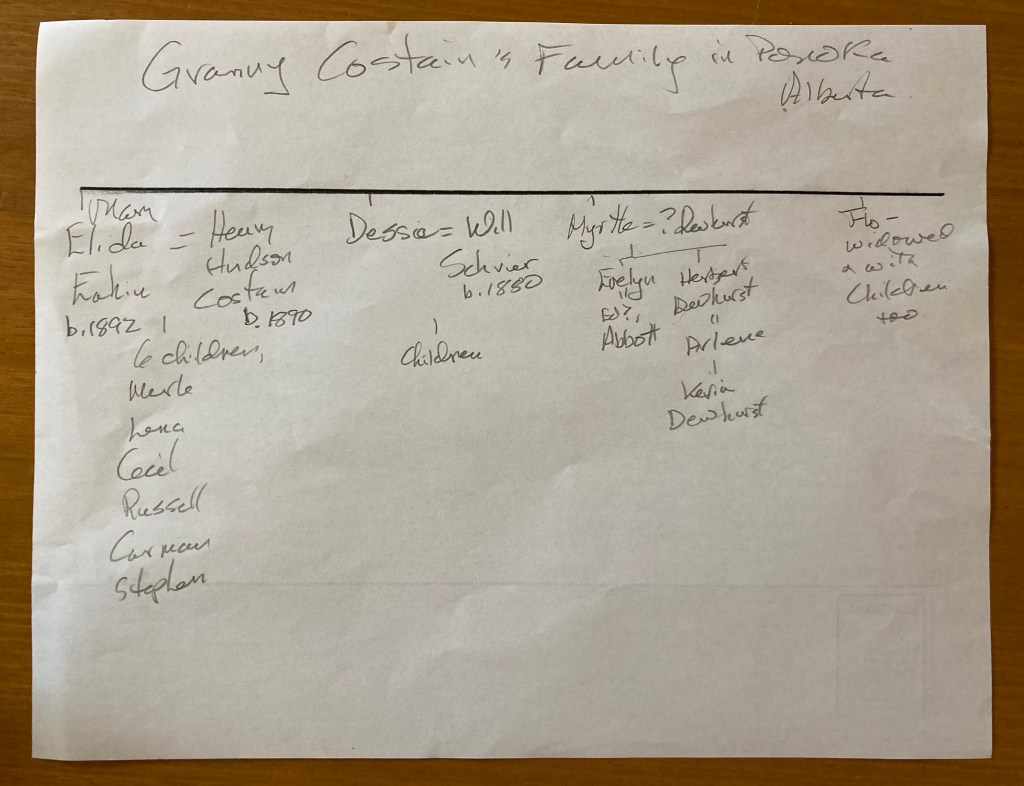 Granny Costain's Family in Ponoka
Alberta
Mary
Elida = Henry
Hudson
Eakin Costain
b. 1892 b. 1890
6 children,
Merle
Lena
Cecil
Russell
Carman
Stephen
Dessie = Will
Schrier
b. 1880
Children
Myrtle = ? Dewhurst
Evelyn
"
Ed?,
Abbott
Herbert
Dewhurst
"
Arlene
Kevin
Dewhurst
Flo -
widowed
with
Children
too